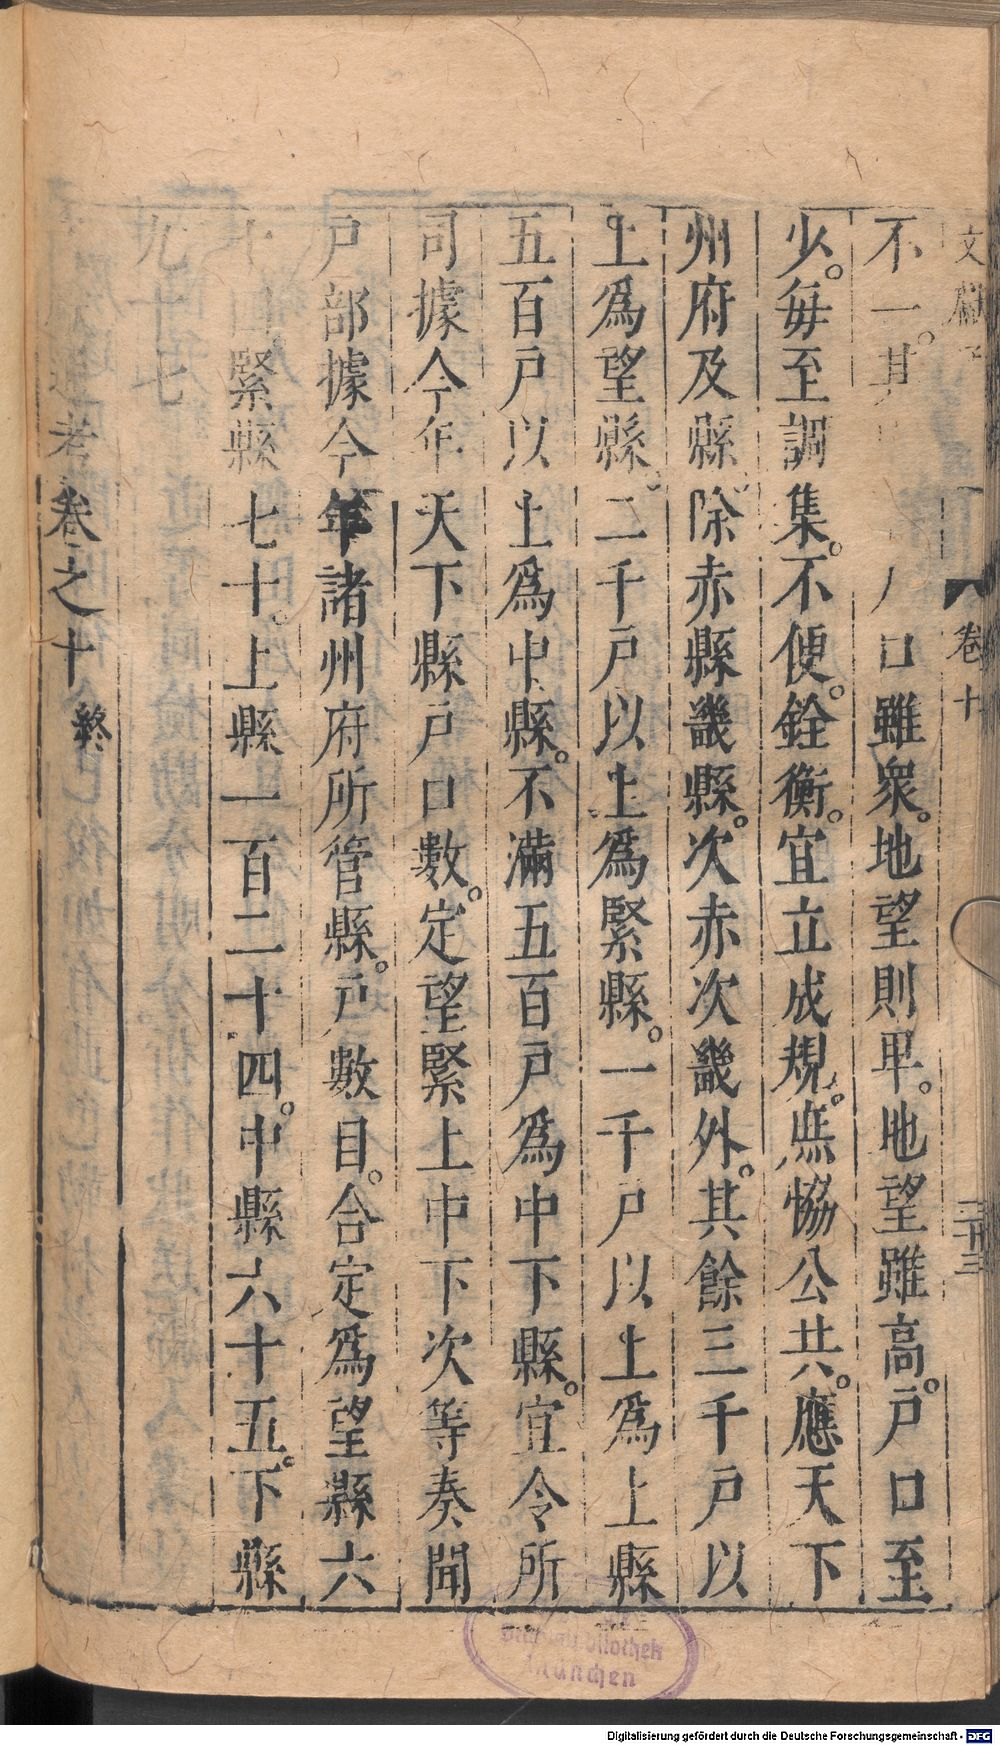 文獻 卷十 二十三
不一。其 戶口雖衆。地望則卑。地望雖高。戶口至
少。每至調集。不便。銓衡。宜立成規。庶恊公共。應天下
州府及縣。除赤縣畿縣。次赤次畿外。其餘三千戶以
上爲望縣。二千戶以上爲緊縣。一千戶以上爲上縣
五百戶以上爲中縣。不滿五百戶爲中下縣。宜令所
司據今年天下縣戶口數。定望緊上中下次等奏聞
戶部據今年諸州府所管縣。戶數目。合定爲望縣六
十四緊縣七十。上縣一百二十四。中縣六十五。下縣
九十七
考卷之十 終
Staatsbibliothek
München
Digitalisierung gefördert durch die Deutsche Forschungsgemeinschaft - DFG